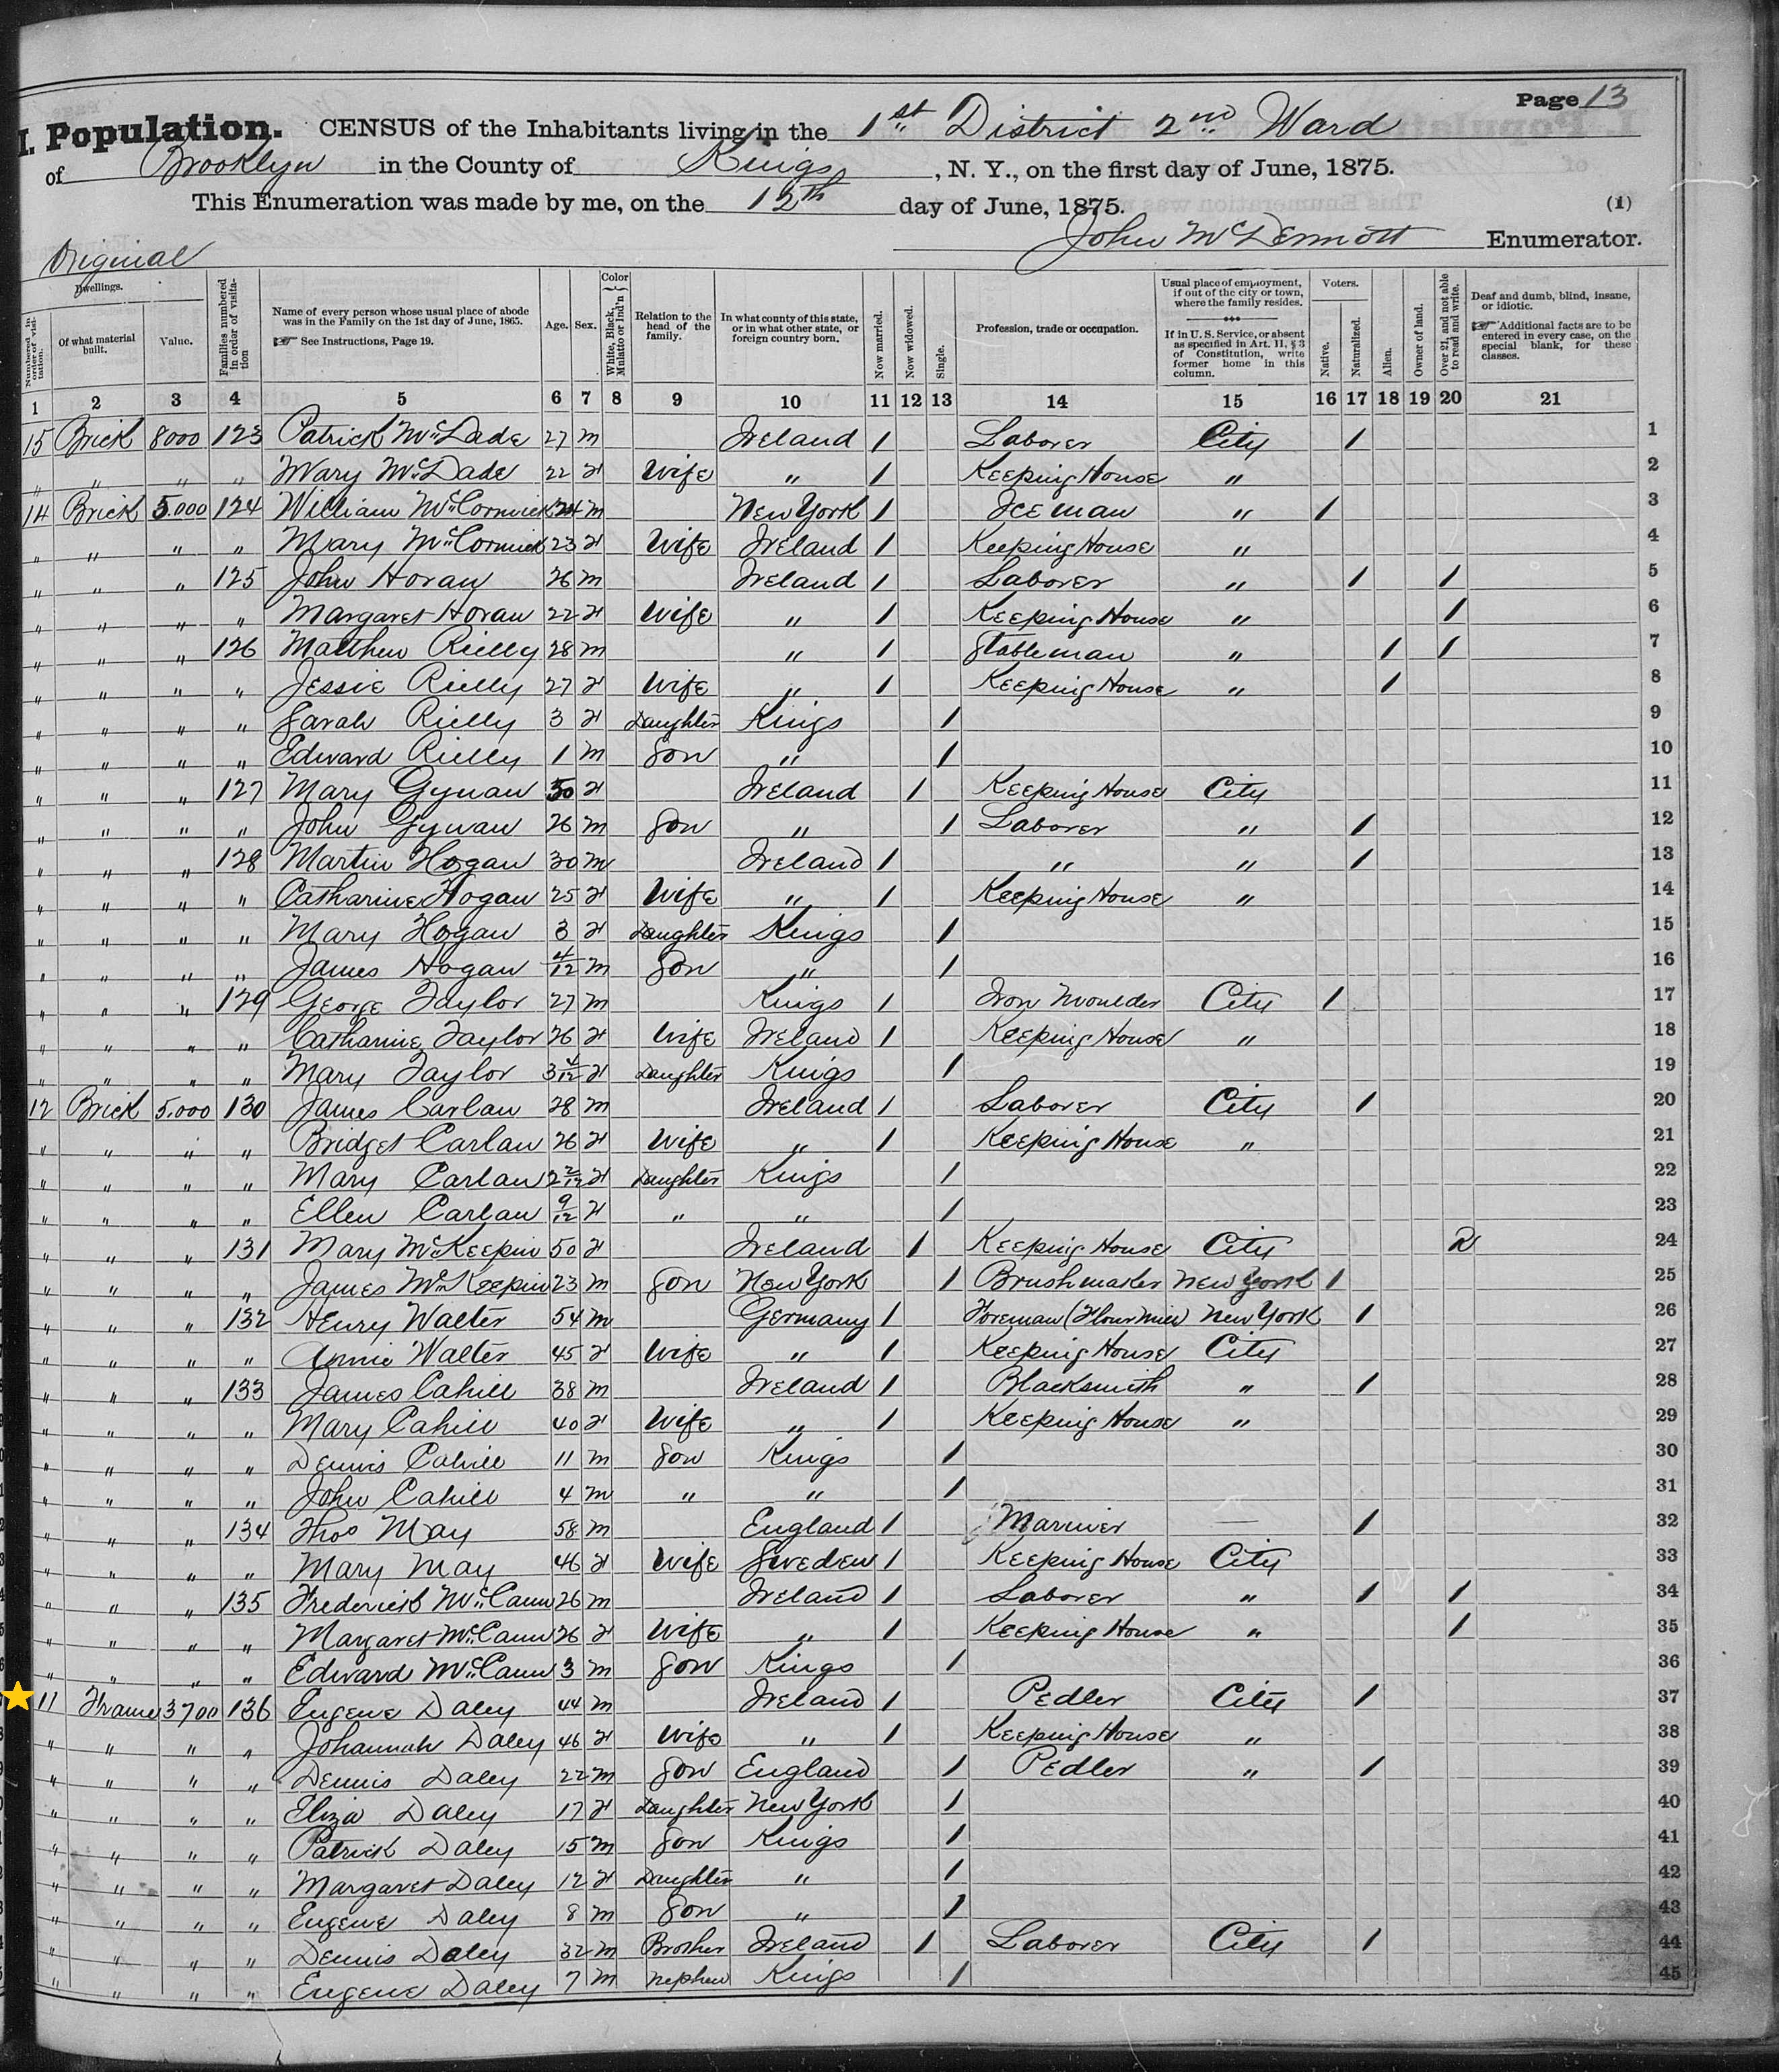 Page 13
I. Population. CENSUS of the Inhabitants living in the 1st District 2nd Ward
of Brooklyn in the County of Kings, N. Y., on the first day of June, 1875.
This Enumeration was made by me, on the 12th day of June, 1875. (1)
John McDermott Enumerator.
Original
Dwellings.
Numbered in order of visitation.
Of what material built.
Value.
Families numbered in order of visitation
Name of every person whose usual place of abode was in the Family on the 1st day of June, 1865.
See Instructions, Page 19.
Age.
Sex.
Color
White, Black, Mulatto or Ind'n
Relation to the head of the family.
In what county of this state, or in what other state, or foreign country born.
Now married.
Now widowed.
Single.
Profession, trade or occupation.
Usual place of employment, if out of the city or town, where the family resides.
If in U. S. Service, or absent as specified in Art. 11, § 3 of Constitution, write former home in this column.
Voters.
Native.
Naturalized.
Alien.
Owner of land.
Over 21, and not able to read and write.
Deaf and dumb, blind, insane, or idiotic.
Additional facts are to be entered in every case, on the special blank, for these classes.
1 2 3 4 5 6 7 8 9 10 11 12 13 14 15 16 17 18 19 20 21
15 Brick 8000 123 Patrick McDade 27 m Ireland 1 Laborer City 1 1
" " " " Mary McDade 22 F Wife " 1 Keeping House " 2
14 Brick 5.000 124 William McCormick 24 m New York 1 Ice man " 1 3
" " " " Mary McCormick 23 F Wife Ireland 1 Keeping House " 4
" " " 125 John Horan 26 m Ireland 1 Laborer " 1 1 5
" " " " Margaret Horan 22 F Wife " 1 Keeping House " 1 6
" " " 126 Matthew Rielly 28 m " 1 Stableman " 1 1 7
" " " " Jessie Rielly 27 F Wife " 1 Keeping House " 1 8
" " " " Sarah Rielly 3 F Daughter Kings 1 9
" " " " Edward Rielly 1 m Son " 1 10
" " " 127 Mary Gynan 50 F Ireland 1 Keeping House City 11
" " " " John Gynan 26 m Son " 1 Laborer " 1 12
" " " 128 Martin Hogan 30 m Ireland 1 " " 1 13
" " " " Catharine Hogan 25 F Wife " 1 Keeping House " 14
" " " " Mary Hogan 3 F Daughter Kings 1 15
" " " " James Hogan 4/12 m Son " 1 16
" " " 129 George Taylor 27 m Kings 1 Iron Moulder City 1 17
" " " " Catharine Taylor 26 F Wife Ireland 1 Keeping House " 18
" " " " Mary Taylor 3 4/12 F Daughter Kings 1 19
12 Brick 5.000 130 James Carlan 28 m Ireland 1 Laborer City 1 20
" " " " Bridget Carlan 26 F Wife " 1 Keeping House " 21
" " " " Mary Carlan 2 2/12 F Daughter Kings 1 22
" " " " Ellen Carlan 9/12 F " " 1 23
" " " 131 Mary McKeepin 50 F Ireland 1 Keeping House City 24
" " " " James McKeepin 23 m Son New York 1 Brushmaker New York 1 25
" " " 132 Henry Walter 54 m Germany 1 Foreman (Flour Mill) New York 1 26
" " " " Annie Walter 45 F Wife " 1 Keeping House City 27
" " " 133 James Cahill 38 m Ireland 1 Blacksmith " 1 28
" " " " Mary Cahill 40 F Wife " 1 Keeping House " 29
" " " " Dennis Cahill 11 m Son Kings 1 30
" " " " John Cahill 4 m " " 1 31
" " " 134 Thos May 58 m England 1 Marriner — 1 32
" " " " Mary May 46 F Wife Sweden 1 Keeping House City 33
" " " 135 Frederick McCann 26 m Ireland 1 Laborer " 1 1 34
" " " " Margaret McCann 26 F Wife " 1 Keeping House " 1 35
" " " " Edward McCann 3 m Son Kings 1 36
11 Frame 3700 136 Eugene Daley 44 m Ireland 1 Pedler City 1 37
" " " " Johannah Daley 46 F Wife " 1 Keeping House " 38
" " " " Dennis Daley 22 m Son England 1 Pedler " 1 39
" " " " Eliza Daley 17 F Daughter New York 1 40
" " " " Patrick Daley 15 m Son Kings 1 41
" " " " Margaret Daley 12 F Daughter " 1 42
" " " " Eugene Daley 8 m Son " 1 43
" " " " Dennis Daley 32 m Brother Ireland 1 Laborer City 1 44
" " " " Eugene Daley 7 m Nephew Kings 1 45